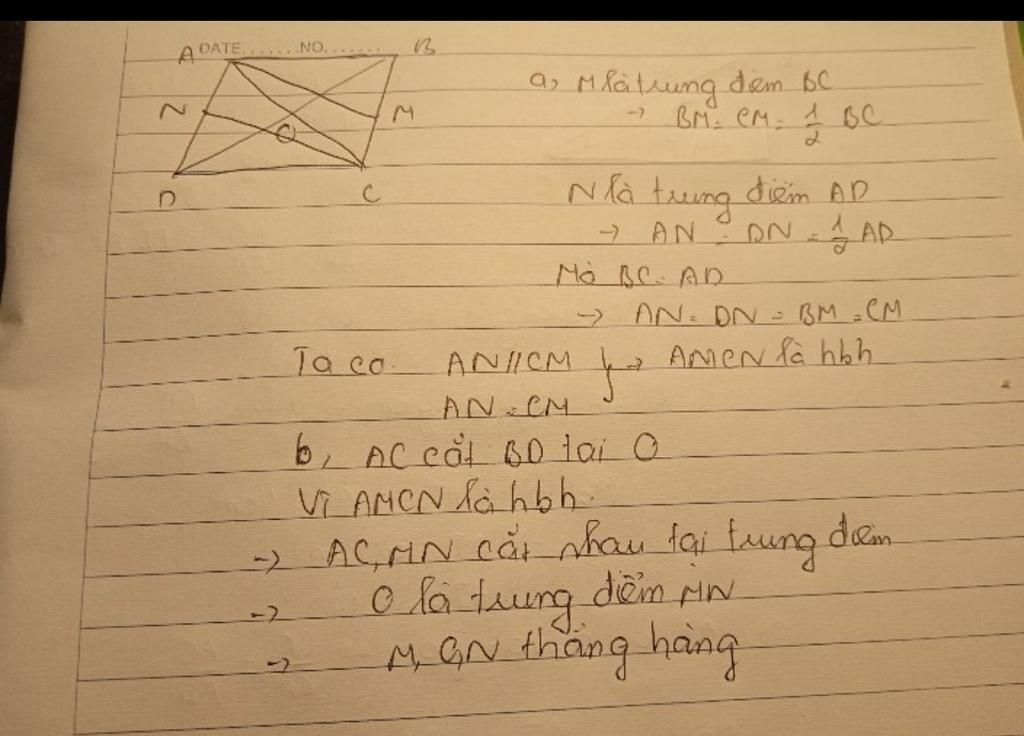 DATE.......NO.......
A B
N M
O
D C
a, M là trung điểm BC
→ BM = CM = 1/2 BC
N là trung điểm AD
→ AN = DN = 1/2 AD
Mà BC = AD
→ AN = DN = BM = CM
Ta co. AN//CM } → AMCN là hbh
AN = CM
b, AC cắt BD tai O
Vì AMCN là hbh.
→ AC, MN cắt nhau tại trung điểm
→ O là trung điểm MN
→ M, O, N thẳng hàng